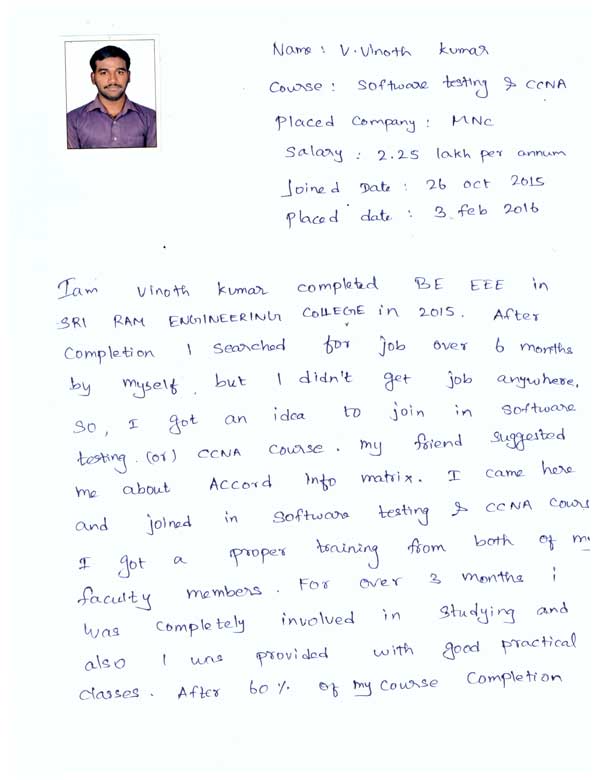 Name : V.Vinoth kumar
Course : Software testing & CCNA
Placed Company : MNC
Salary : 2.25 lakh per annum
Joined Date : 26 oct 2015
Placed date : 3.feb 2016
Iam Vinoth kumar completed BE EEE in
SRI RAM ENGINEERING COllEGE in 2015. After
Completion I Searched for job over 6 months
by myself. but I didn't get job anywhere.
So, I got an idea to join in Software
testing. (or) CCNA course. my friend suggested
me about Accord Info matrix. I came here
and joined in Software testing & CCNA Cours
I got a proper training from both of my
faculty members. For over 3 months i
was completely involved in Studying and
also I was provided with good practical
classes. After 60% of my course Completion